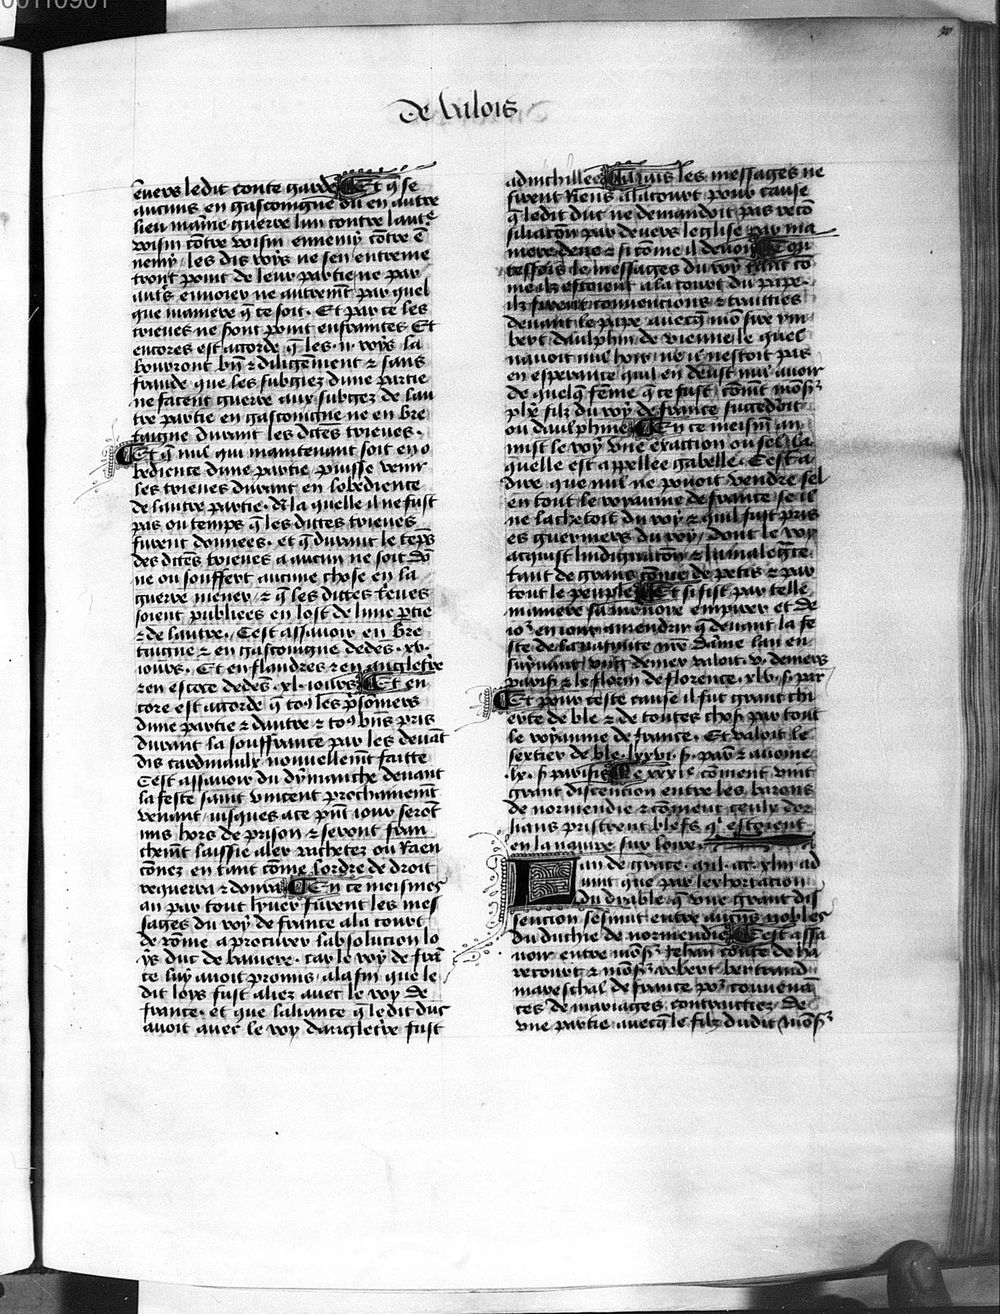 00110901
de valois
envers ledit conte garde Et q̄ se
aucuns en gascoingne ou en autre
lieu maīne guerre lun contre laut̄e
voisin cōtre voisin ennemy cōtre ē
nemy / les dis roys ne sen entreme
tront point de leur partie ne par
aulx envoier ne autrem̄t par quel
que maniere q̄ ce soit. Et par ce les
trieues ne sont point enfraintes Et
encores est acorde q̄ les .ii. roys la
boureront bn̄ & diligēment & sans
fraude que les subgiez dune partie
ne facent guerre aux subgez de lau
tre partie en gascoingne ne en bre
taigne durant les dictes trieues.
Et q̄ nul qui maintenant soit en o
bedience dune partie puisse venir
les trieues durant en lobedience
de lautre partie. de la quelle il ne fust
pas ou temps q̄ les dictes trieues
furent donnees. et q̄ durant le tēps
des dictes trieues a aucun ne soit dō
ne ou souffert aucune chose en la
guerre mener / & q̄ les dictes treues
soient publiees en lost de lune ptie
& de lautre. Cest assavoir en bre
taigne & en gascoingne dedēs .xv.
iours. Et en flandres & en angletr̄e
& en escoce dedēs .xl. iours Et en
core est acorde q̄ to9 les p̄sonniers
dune partie & dautre & to9 biēs pris
durant la souffrance par les devāt
dis cardinaulx nouvellem̄t faitte
Cest assavoir du dymanche devant
la feste saint vincent prochainem̄t
venant / iusques a ce p̄nt iour serōt
mis hors de prison & seront fran
chem̄t laissie aler rachetez ou raen
cōnez en tant cōme lordre de droit
requerra & donra En ce meismes
an par tout lyver furent les mes
sages du roy de france a la court
de rōme a procurer labsolution lo
ys duc de baviere. car le roy de frā
ce luy avoit promis. a la fin que le
dit loys fust aliez avec le roy de
france. et que laliance q̄ le dit duc
avoit avec le roy dangletr̄e fust
adnichillee Mais les messages ne
firent riens a la court pour cause
q̄ ledit duc ne demandoit pas recō
siliaciōn par devers leglise par ma
niere deue & si cōme il devoit Et qui
tesfois le messages du roy tant cō
me ilz estoient a la court du pape.
ilz firent convencions & traitties
devant le pape avecq̄ mōs sire ym
bert daulphin de vienne le quel
navoit nul hoir ne il nestoit pas
en esperance quil en deust nul avoir
de quelq̄ fēme q̄ ce fust / cōmt mōs̄
phē filz du roy de france succedoit
ou daulphine En ce meism̄ an
mist le roy une exaction ou sel / la
quelle est appellee gabelle. Cest a
dire que nul ne povoit vendre sel
en tout le royaume de france se il
ne lachetoit du roy & quil fust pris
es guerniers du roy / dont le roy
acquist lindignaciōn & la malegrace
tant de grans cōme de petis & par
tout le peuple Et si fist par telle
maniere sa mōnoie empirer et de
io9 en iour amendrir q̄ devant la fe
ste de la nativite n̄re dāme lan en
suyvant / ung denier valoit .v. deniers
parisis & le florin de florence .xlv. s. par
Et pour ceste cause il fut grant chi
erte de ble & de toutes chos̄ par tout
le royaume de france. Et valoit le
sextier de ble .lxxvi. s. par & avoine
.lx. s. parisis Le xxxie cōment vint
grant discention entre les barons
de normendie & cōment ceulx dor
lians pristrent blefs q̄ estoient
en la navire sur loire.
an de grace .mil. ccc. xliii ad
vint que par lexhortation
du dyable q̄ une grant dis
sencion sesmut entre aucūs nobles
du duchie de normendie Cest assa
voir entre mōs̄ Jehan cōte de ha
recourt & mōs̄ robert bertrand
mareschal de france por couvenā
ces de mariages contraictiez de
une partie avecq̄ le filz dudit mōs̄